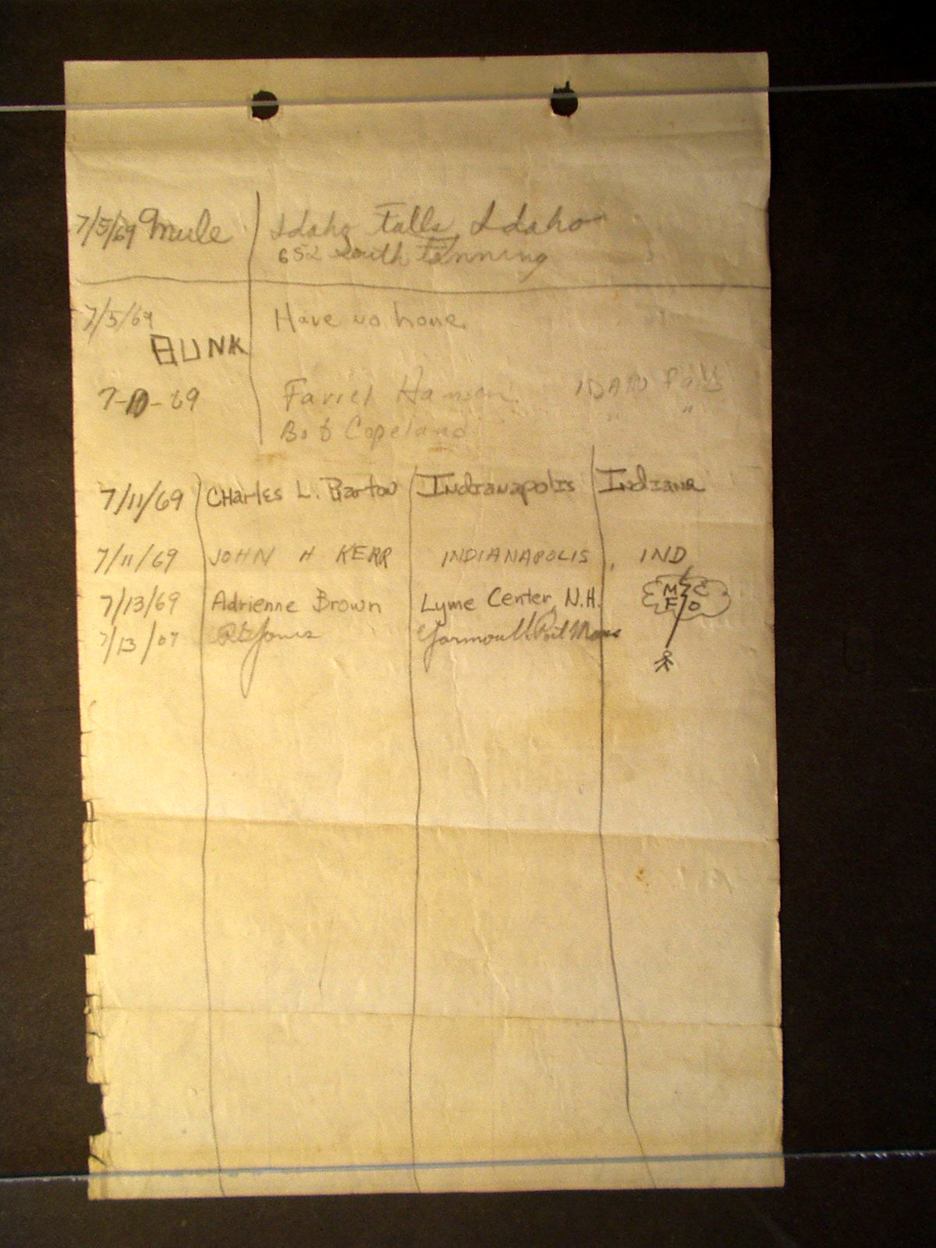 7/5/69 Mule Idaho Falls, Idaho
652 South Fanning
7/5/69 Have no home.
BUNK
7-10-69 Farrel Hansen. IDAHO Falls
Bob Copeland " "
7/11/69 CHarles L. Barton Indianapolis Indiana
7/11/69 JOHN H KERR INDIANAPOLIS, IND
7/13/69 Adrienne Brown Lyme Center, N.H.
7/13/69 Yarmouth Port Mass